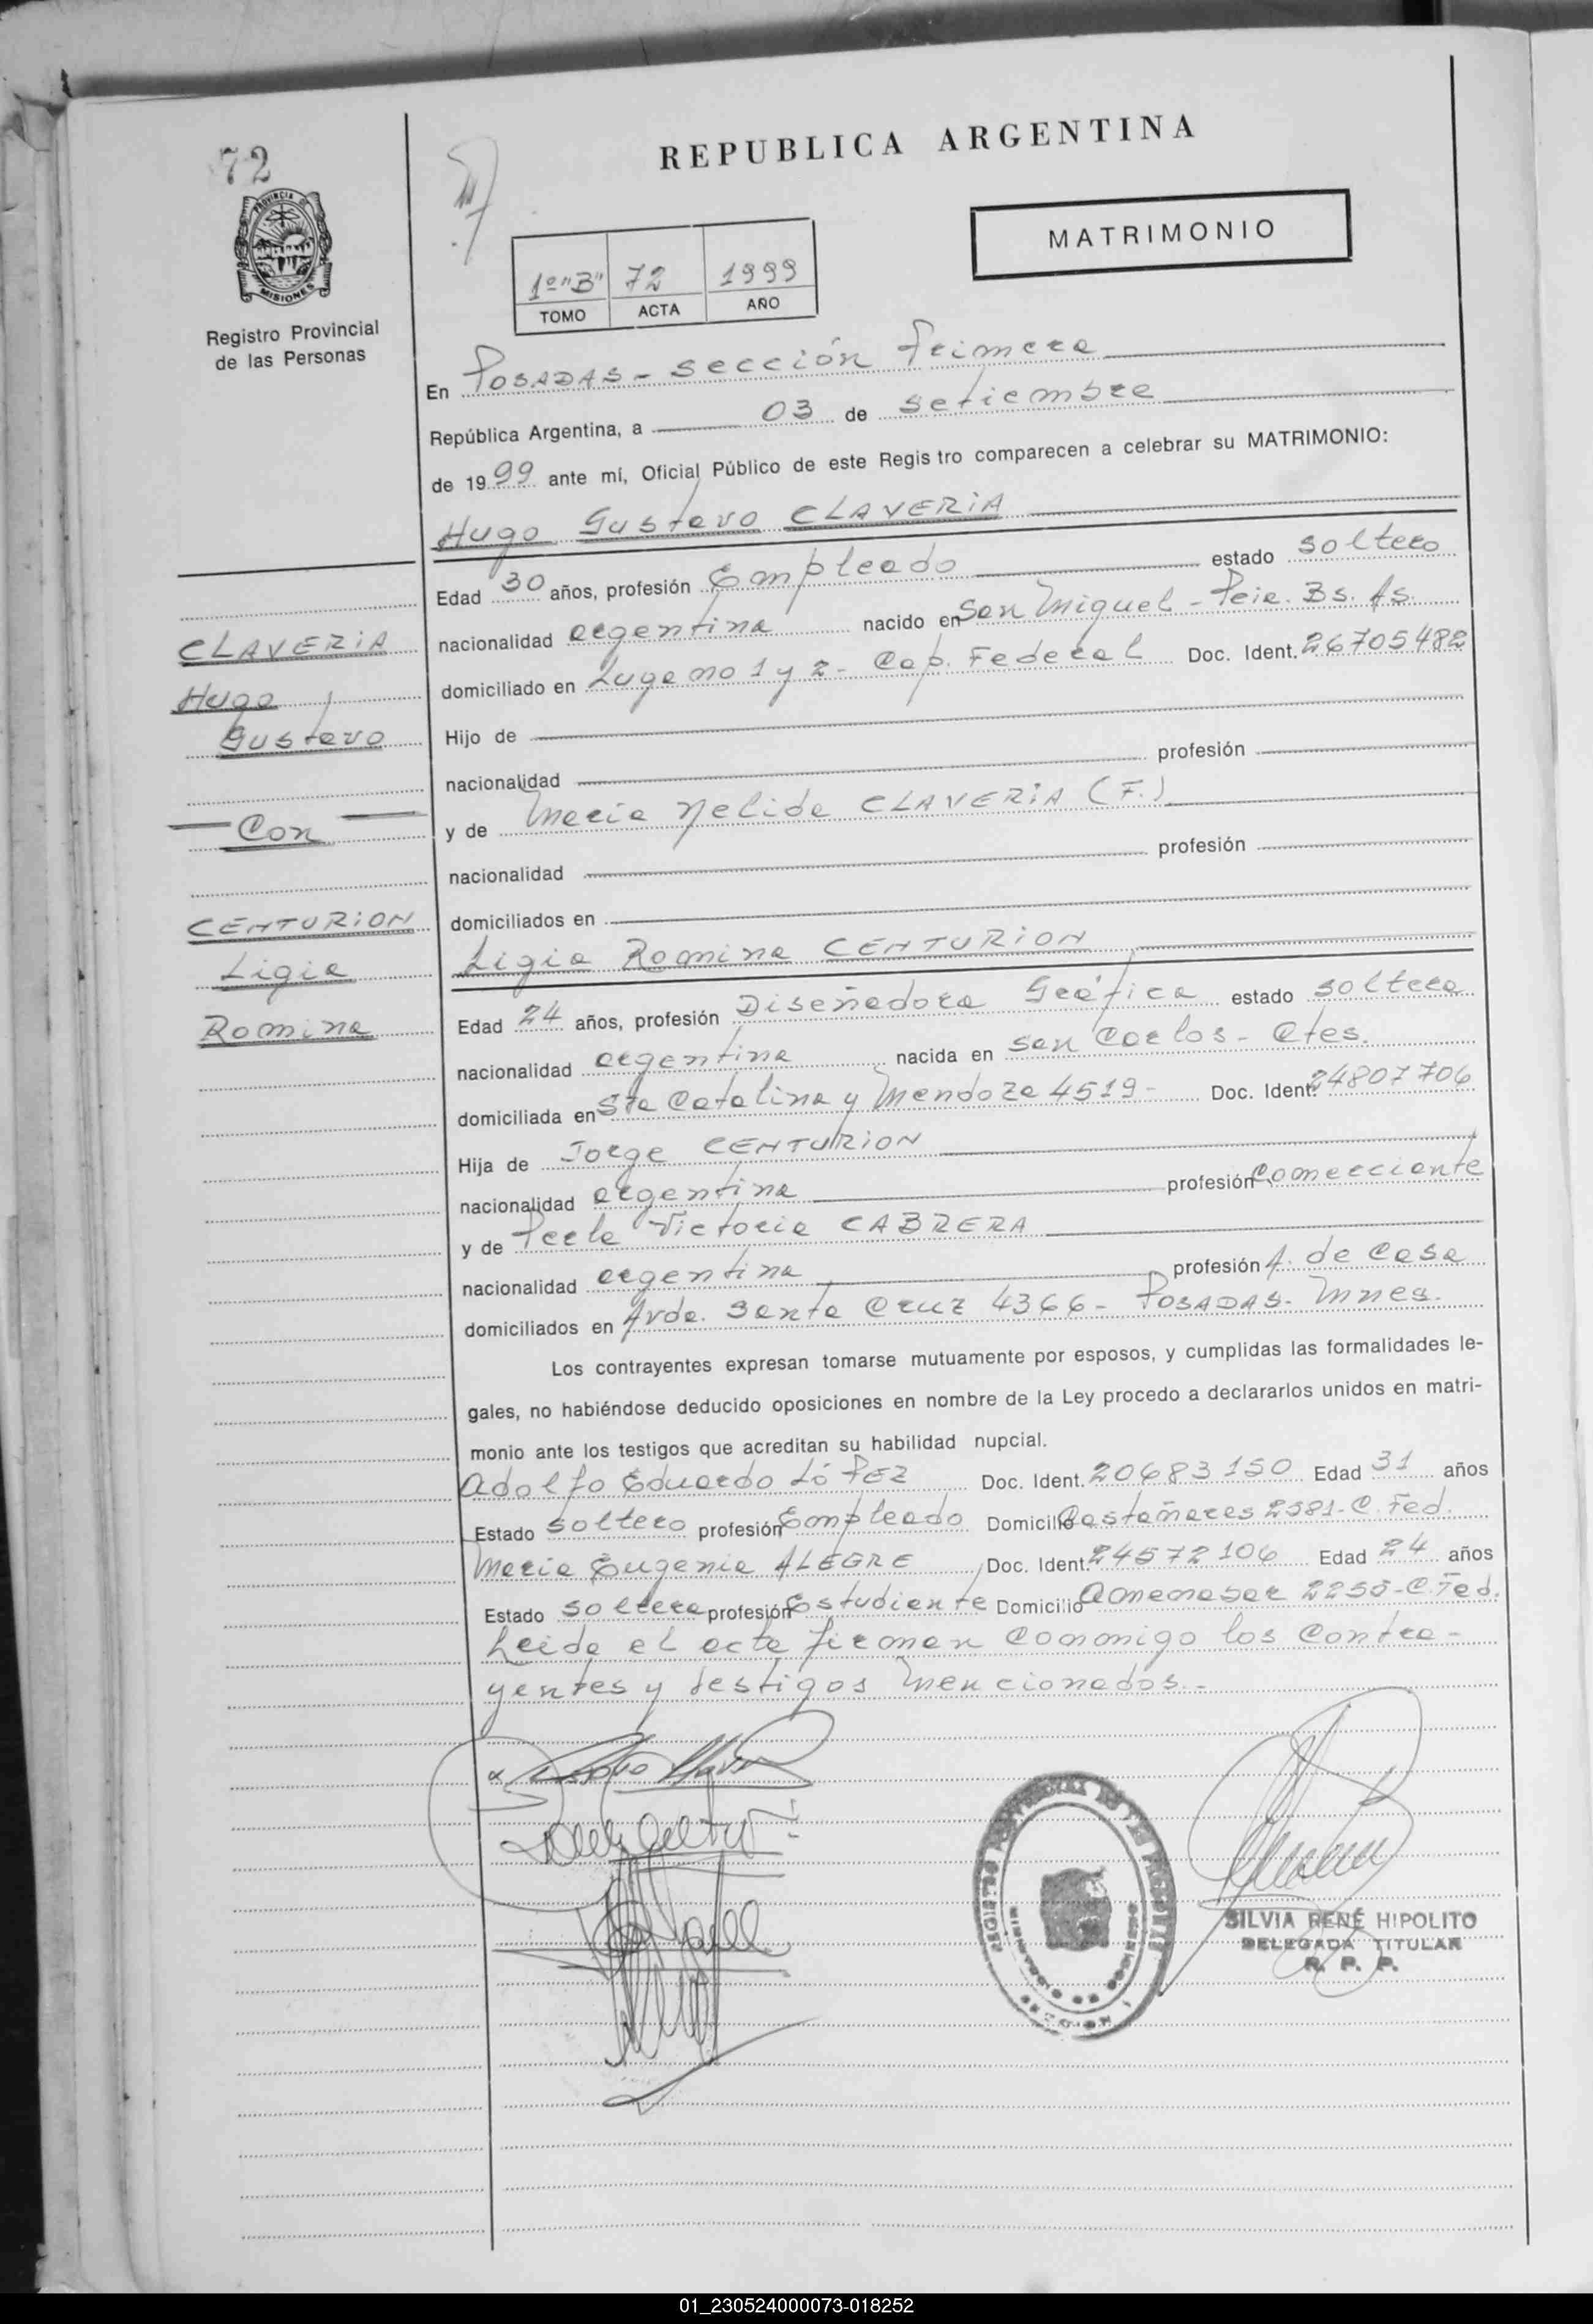 72
PROVINCIA DE
MISIONES
Registro Provincial
de las Personas
REPUBLICA ARGENTINA
MATRIMONIO
1º "B" 72 1999
TOMO ACTA AÑO
En POSADAS - sección Primera
República Argentina, a 03 de setiembre
de 1999 ante mí, Oficial Público de este Regis tro comparecen a celebrar su MATRIMONIO:
Hugo Gustavo CLAVERiA
Edad 30 años, profesión Empleado estado soltero
nacionalidad argentina nacido en San Miguel - Pcia. Bs. As.
domiciliado en Lugano 1 y 2 - Cap. Federal Doc. Ident. 26705482
Hijo de
nacionalidad profesión
y de María Nelida CLAVERiA (F.)
nacionalidad profesión
domiciliados en
CLAVERiA
Hugo
Gustavo
Con
CENTURiON
Ligia
Romina
Ligia Romina CENTURiON
Edad 24 años, profesión Diseñadora Gráfica estado soltera
nacionalidad argentina nacida en San Carlos - Ctes.
domiciliada en Sta Catalina y Mendoza 4519 - Doc. Ident. 24807706
Hija de Jorge CENTURiON
nacionalidad argentina profesión Comerciante
y de Perla Victoria CABRERA
nacionalidad argentina profesión A. de Casa
domiciliados en Avda. Santa Cruz 4366 - POSADAS - Mnes.
Los contrayentes expresan tomarse mutuamente por esposos, y cumplidas las formalidades le-
gales, no habiéndose deducido oposiciones en nombre de la Ley procedo a declararlos unidos en matri-
monio ante los testigos que acreditan su habilidad nupcial.
Adolfo Eduardo LóPEZ Doc. Ident. 20683150 Edad 31 años
Estado soltero profesión Empleado Domicilio Castañares 2381 - C. Fed.
María Eugenia ALEGRE Doc. Ident. 24572106 Edad 24 años
Estado soltera profesión Estudiante Domicilio 2255 - C. Fed.
Leida el acta firman conmigo los contra-
yentes y testigos mencionados.-
SILVIA RENÉ HIPOLITO
DELEGADA TITULAR
R. P. P.
01_230524000073-018252